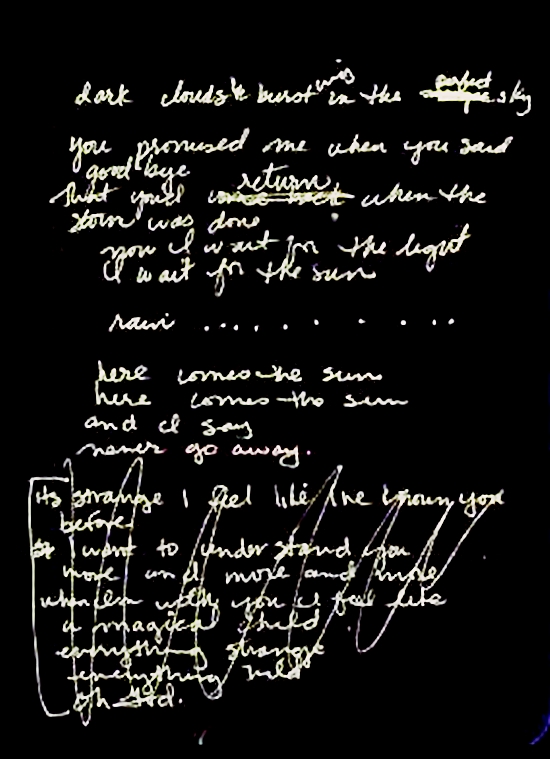 dark clouds burst in the perfect sky
you promised me when you said
good bye
that you'd return when the
storm was done
now I wait for the light
I wait for the sun
rain .... . . . . ...
here comes the sun
here comes the sun
and I say
never go away.
its strange I feel like I've known you
before.
I want to understand you
more and more and more
when I'm with you I feel like
a magical child
everything strange
everything wild